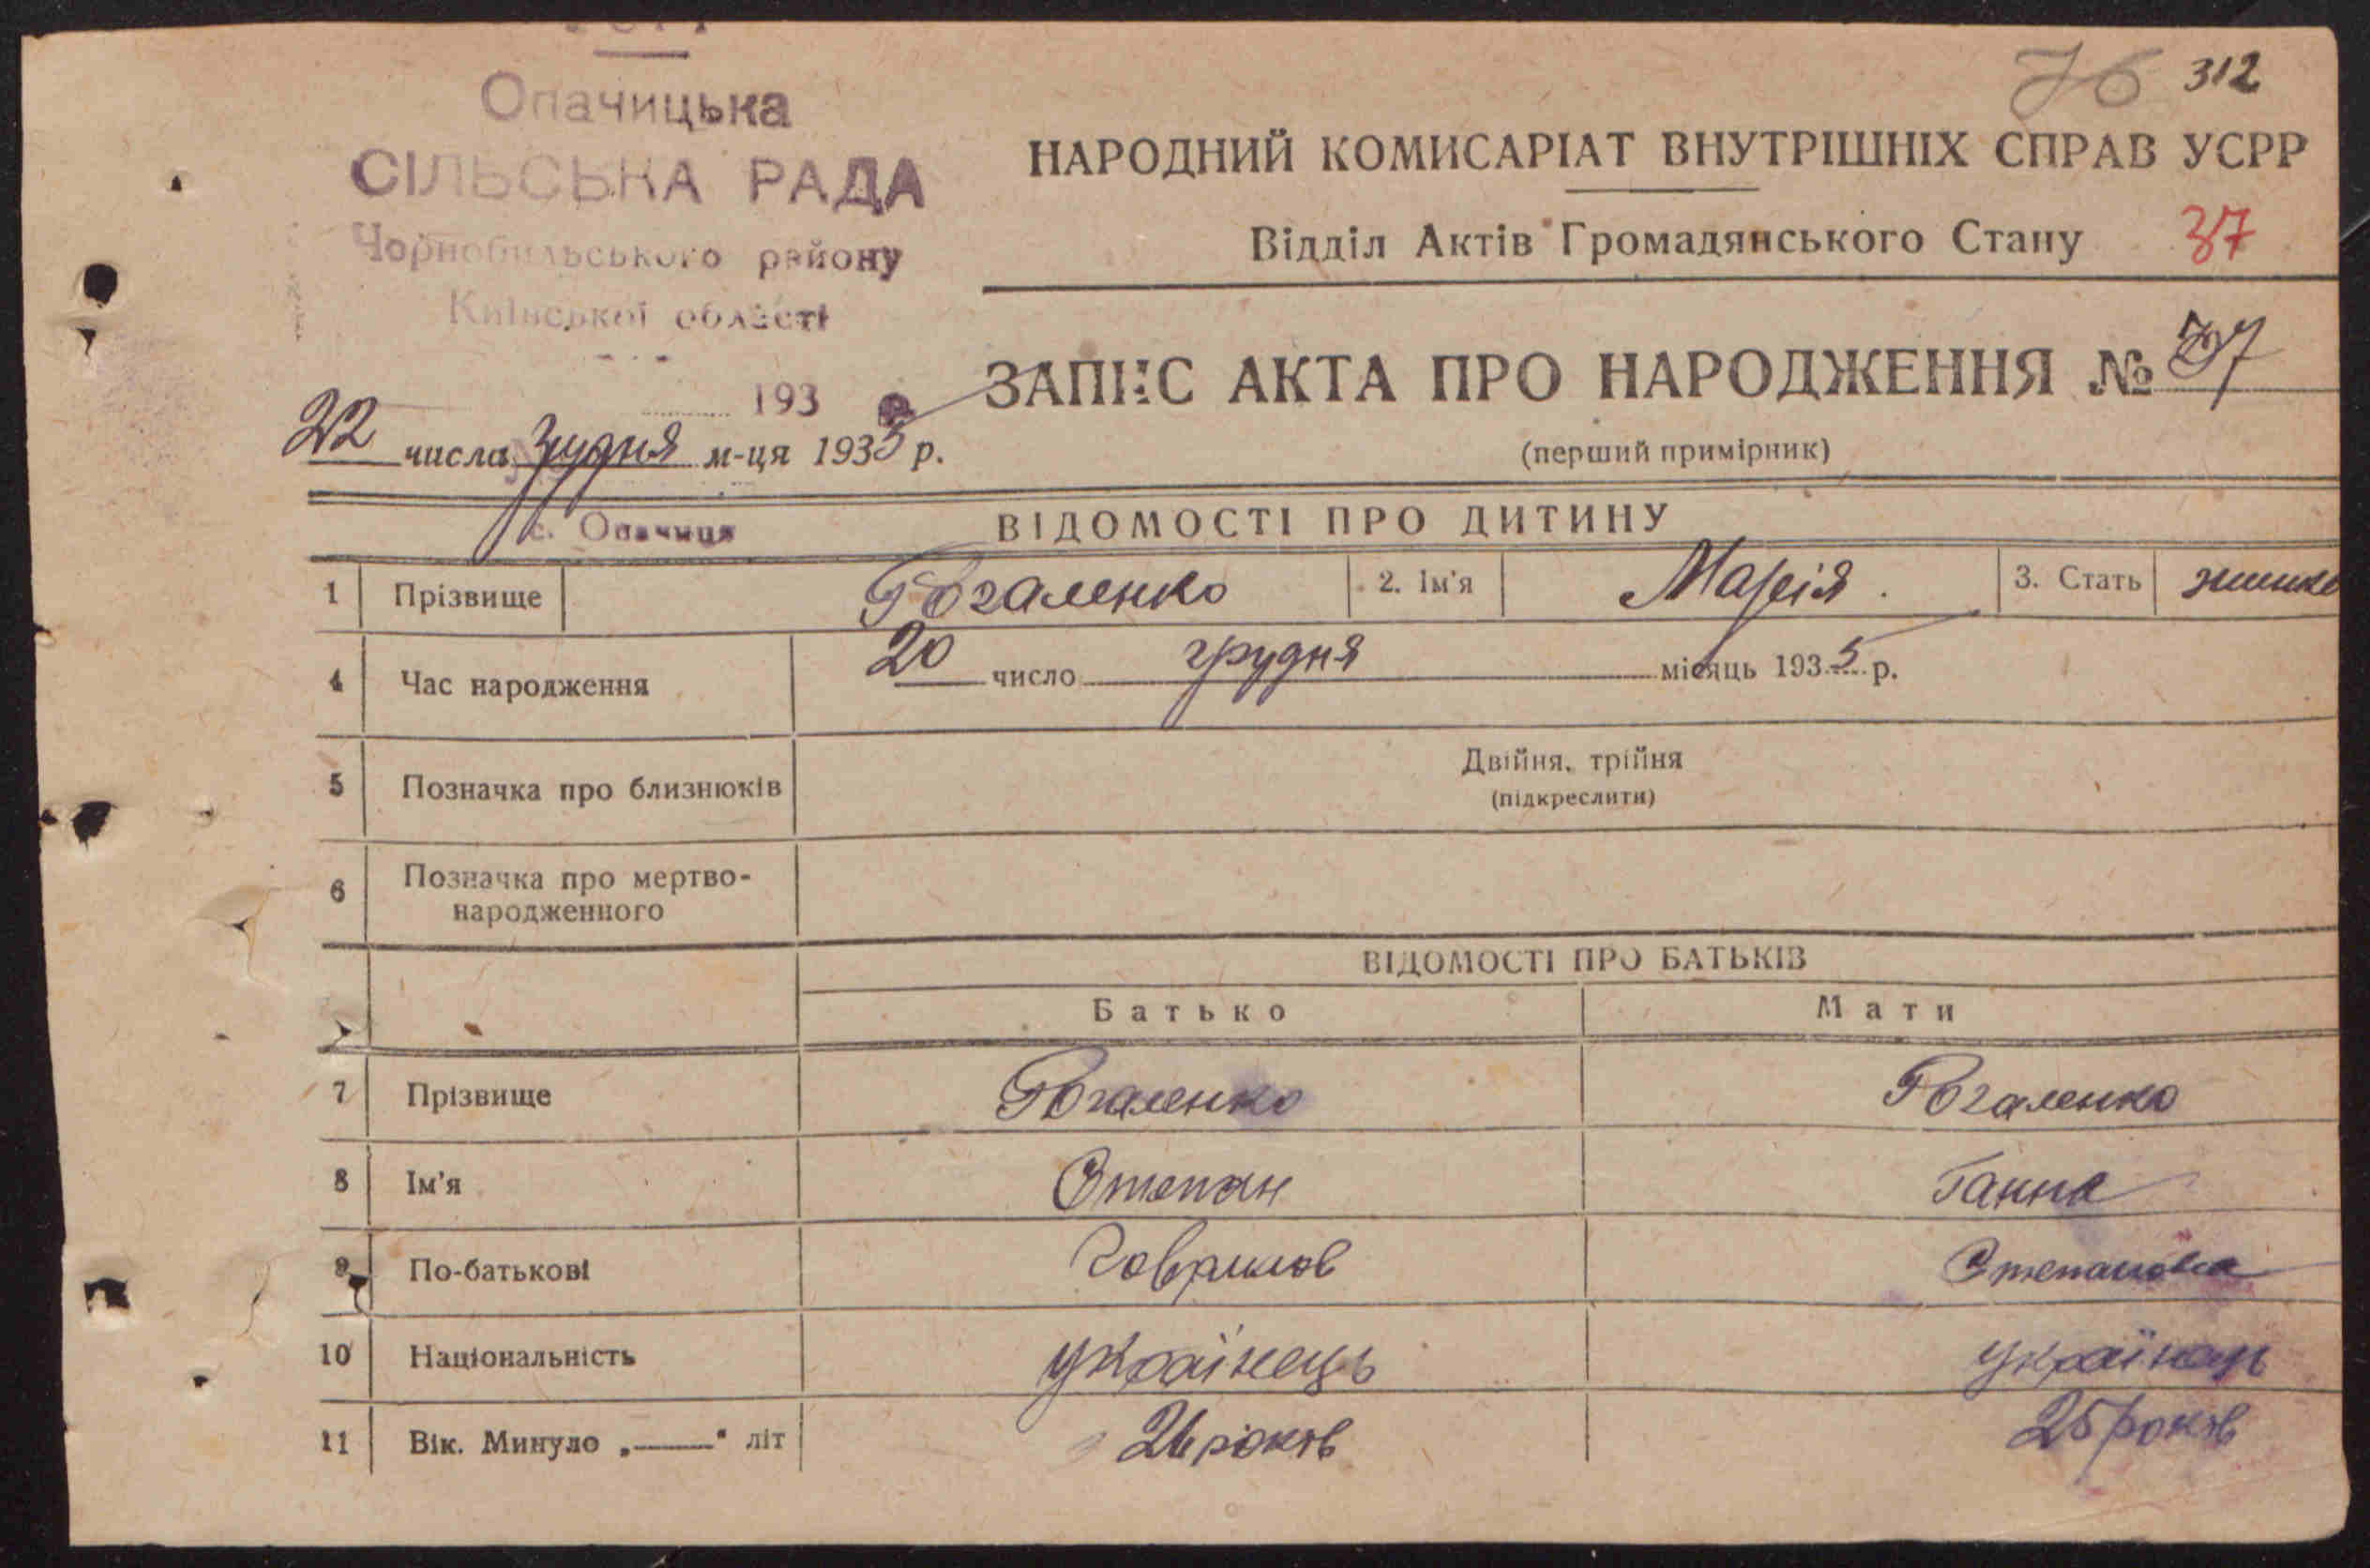 Опачицька
СІЛЬСЬКА РАДА
Чорнобильського району
Київської області
193
22 числа грудня м-ця 1935 р.
с. Опачиця
312
НАРОДНИЙ КОМИСАРІАТ ВНУТРІШНІХ СПРАВ УСРР
Відділ Актів Громадянського Стану 37
ЗАПИС АКТА ПРО НАРОДЖЕННЯ №
(перший примірник)
ВІДОМОСТІ ПРО ДИТИНУ
1 Прізвище Рогаленко 2. Ім'я Марія. 3. Стать
4 Час народження 20 число грудня місяць 1935 р.
5 Позначка про близнюків Двійня, трійня
(підкреслити)
6 Позначка про мертво-
народженного
ВІДОМОСТІ ПРО БАТЬКІВ
Батько Мати
7 Прізвище Рогаленко Рогаленко
8 Ім'я Степан Ганна
9 По-батькові Гаврилов Степановна
10 Національність українець
11 Вік. Минуло „——“ літ 26 років 25 років